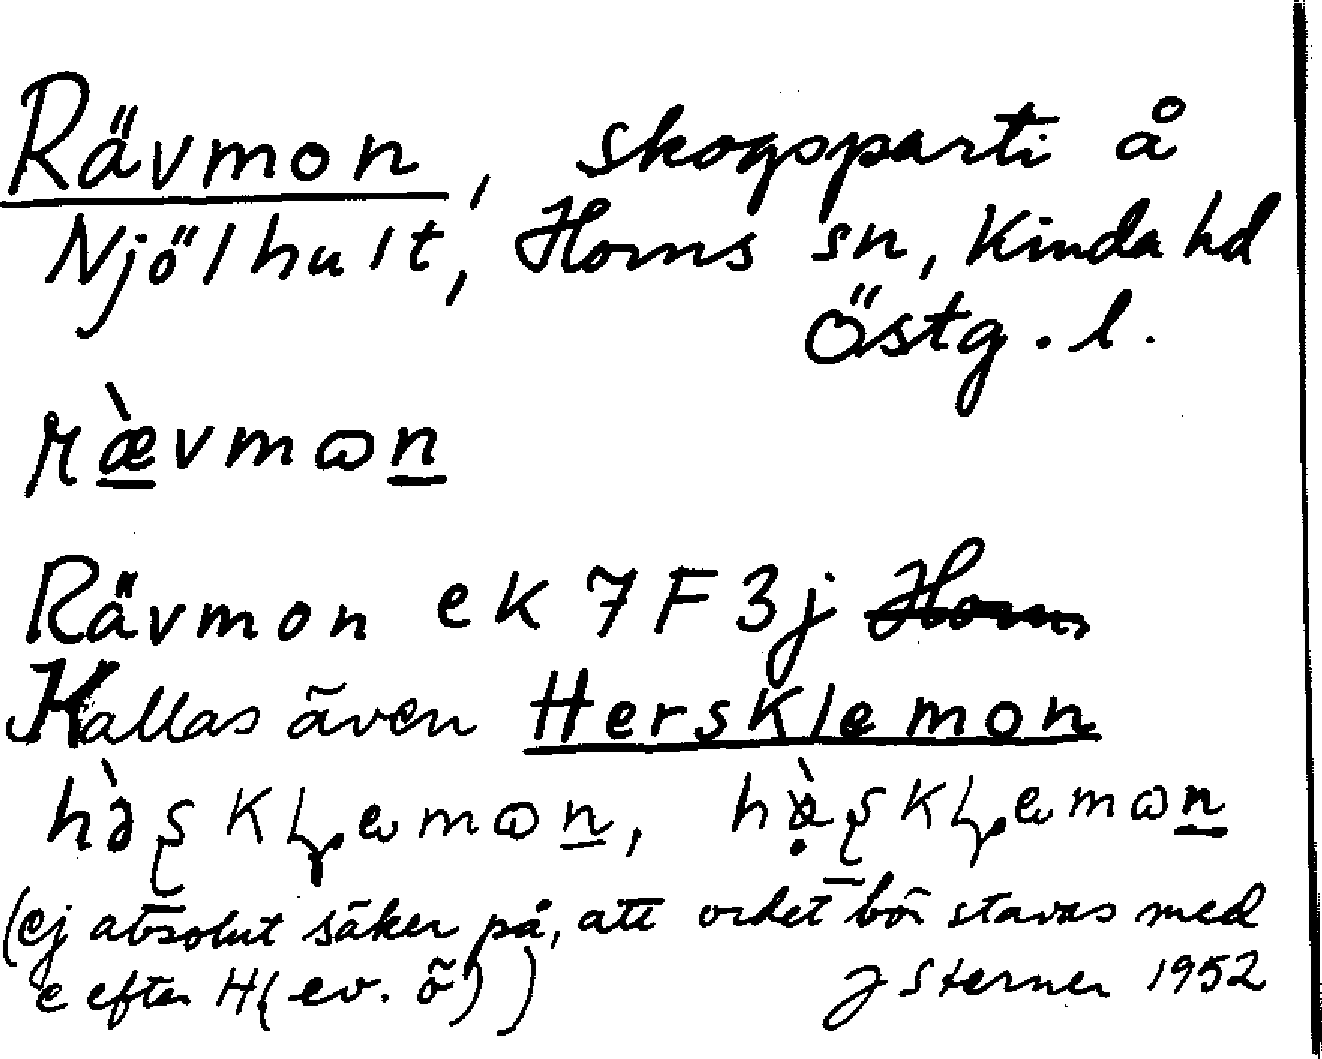 Rävmon, skogsparti å
Njölhult, Horns sn, Kinda hd
Östg. l.
Rävmon ek 7F3j
Kallas även Hersklemon
(ej absolut säker på, att ordet bör stavas med
e efter H (ev. ö)) J Sterner 1952